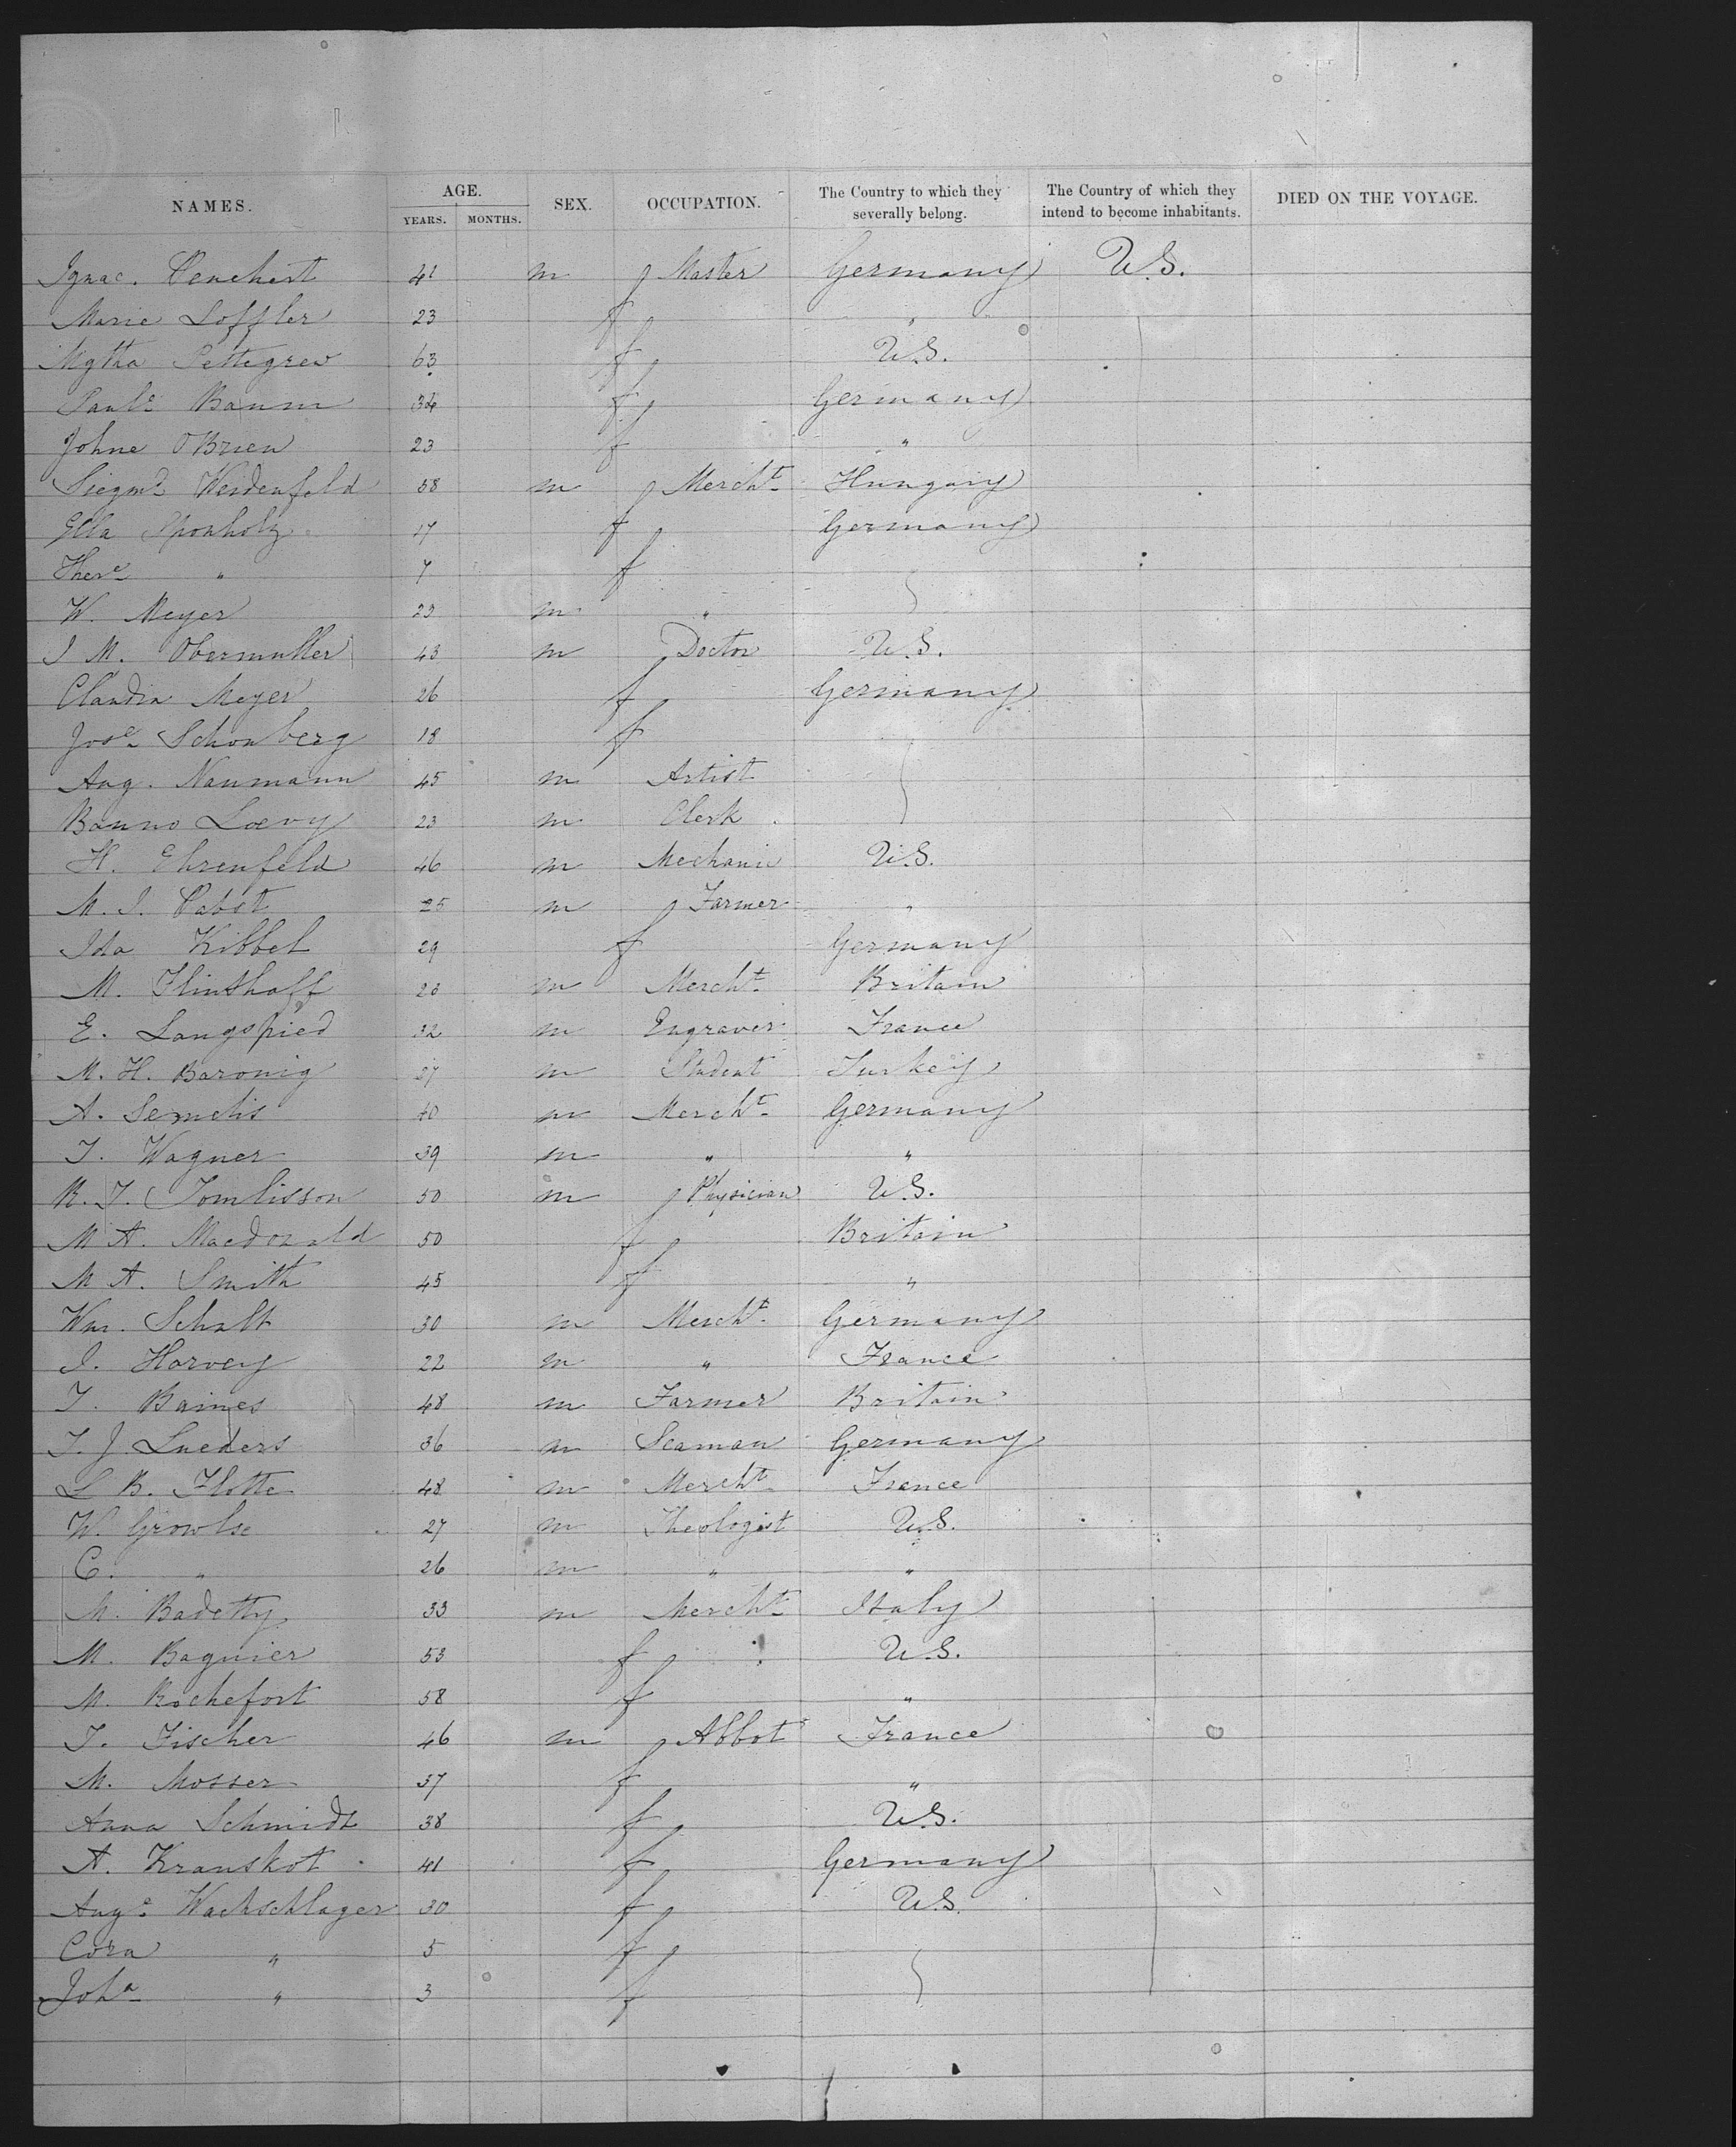 NAMES. AGE. SEX. OCCUPATION. The Country to which they severally belong. The Country of which they intend to become inhabitants. DIED ON THE VOYAGE.
YEARS. MONTHS.
Ignac. 41 m Master Germany U.S.
Marie Loffler 23 f "
Mytha Pettegrew 63 f U.S.
Paule Baum 34 f Germany
Johne OBrien 23 f "
Siegmd Weidenfeld 58 m Mercht Hungary
Ella Sponholz 17 f Germany
There " 7 f
W. Meyer 23 m "
J M. Obermuller 43 m Doctor U.S.
Claudia Meyer 26 f Germany
Jose Schonberg 18 f
Aug. Naumann 45 m Artist
Banno Loevy 23 m Clerk
H. Ehrenfeld 46 m Mechanic U.S.
M. J. Pabst 25 m Farmer "
Ida Kibbel 29 f Germany
M. Flinthoff m Mercht Britain
E. Langspied 32 m Engraver France
M. H. Baronig 27 m Student Turkey
A. Semelis 40 m Mercht Germany
T. Wagner 39 m " "
R. T. Tomlisson 50 m Physician U.S.
M A. Macdonald 50 f Britain
M A. Smith 45 f "
Wm. Schalt 30 m Mercht Germany
J. Harvey 22 m " France
T. Baines 48 m Farmer Britain
T. J Lueders 36 m Seaman Germany
L B. Flotte 48 m Mercht France
W. Growlse 27 m Theologist U.S.
C. " 26 m " "
M. Badetty 33 m Mercht Italy
M. Bagnier 53 f U.S.
M. Rochefort 58 f "
T. Fischer 46 m Abbot France
M. Mosser 37 f "
Anna Schmidt 38 f U.S.
A. Kranskot 41 f Germany
Auge Wachschlager 30 f U.S.
Cora " 5 f
Joha " 3 f